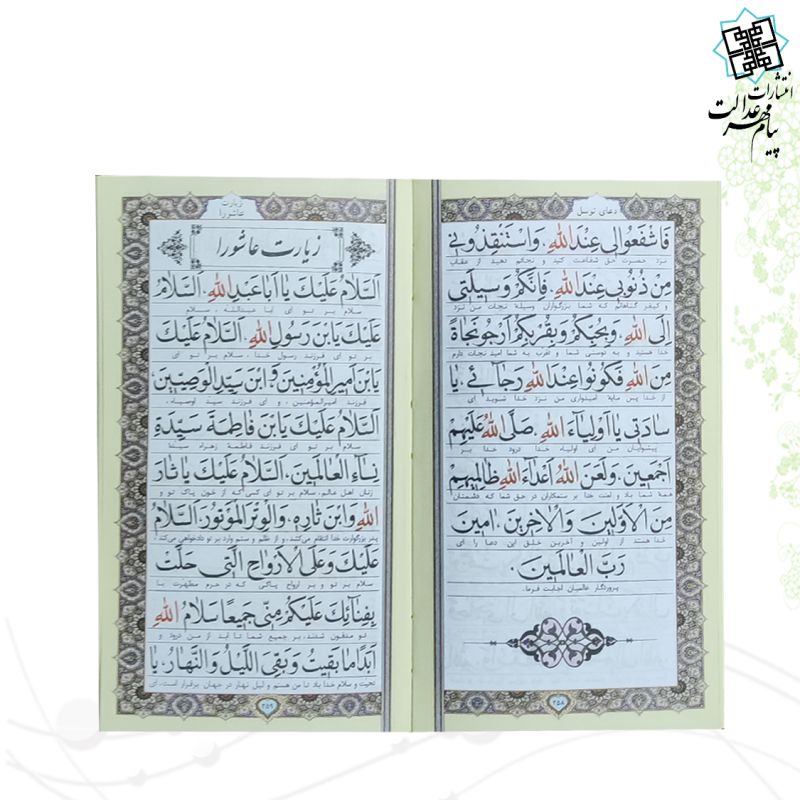 انتشارات
پیام مهر عدالت
دعای توسل
فَاشْفَعُوا لی عِنْدَ اللهِ، وَاسْتَنْقِذُونی
نزد حضرت حق شفاعت کنید و نجاتم دهید از عقاب
مِنْ ذُنُوبی عِنْدَ اللهِ، فَاِنَّکُمْ وَسیلَتی
و کیفر گناهانم که شما بزرگواران وسیله نجات من نزد
اِلَی اللهِ، وَبِحُبِّکُمْ وَبِقُرْبِکُمْ اَرْجُو نَجاةً
خدا هستید و به دوستی شما و تقرب به شما امید نجات دارم
مِنَ اللهِ، فَکُونُوا عِنْدَ اللهِ رَجآئی، یا
از خدا پس مایه امیدواری من نزد خدا شوید ای
سادَتی یا اَوْلِیآءَ اللهِ، صَلَّی اللهُ عَلَیْهِمْ
پیشوایان من ای اولیاء خدا درود خدا بر
اَجْمَعینَ، وَلَعَنَ اللهُ اَعْدآءَ اللهِ ظالِمیهِمْ
همه شما باد و لعنت خدا بر ستمکاران در حق شما که دشمنان
مِنَ الْاَوَّلینَ وَالْاخِرینَ، امینَ
خدا هستند از اولین و آخرین خلق این دعا را ای
رَبَّ الْعالَمینَ.
پروردگار عالمیان اجابت فرما.
۲۵۸
زیارت
عاشورا
زیارت عاشورا
اَلسَّلامُ عَلَیْکَ یا اَبا عَبْدِ اللهِ، اَلسَّلامُ
سلام بر تو ای ابا عبدالله، سلام
عَلَیْکَ یَا بْنَ رَسُولِ اللهِ، اَلسَّلامُ عَلَیْکَ
بر تو ای فرزند رسول خدا، سلام بر تو ای
یَا بْنَ اَمیرِ الْمُؤْمِنینَ وَ ابْنَ سَیِّدِ الْوَصِیّینَ،
فرزند امیرالمؤمنین، و ای فرزند سید اوصیاء،
اَلسَّلامُ عَلَیْکَ یَا بْنَ فاطِمَةَ سَیِّدَةِ
سلام بر تو ای فرزند فاطمه زهراء سیدة
نِساءِ الْعالَمینَ، اَلسَّلامُ عَلَیْکَ یا ثارَ
زنان اهل عالم، سلام بر تو ای کسی که از خون پاک تو و
اللهِ وَابْنَ ثارِهِ، وَالْوِتْرَ الْمَوْتُورَ، اَلسَّلامُ
پدر بزرگوارت خدا انتقام می‌کشد، و از ظلم و ستم وارد بر تو دادخواهی می‌کند
عَلَیْکَ وَعَلَی الْاَرْواحِ الَّتی حَلَّتْ
سلام بر تو و بر ارواح پاکی که در حرم مطهرت با
بِفِنائِکَ عَلَیْکُمْ مِنّی جَمیعًا سَلامُ اللهِ
تو مدفون شدند، بر جمیع شما تا ابد از من درود و
اَبَدًا ما بَقیتُ وَ بَقِیَ اللَّیْلُ وَ النَّهارُ، یا
تحیت و سلام خدا باد تا من هستم و لیل نهار در جهان برقرار است، ای
۲۵۹